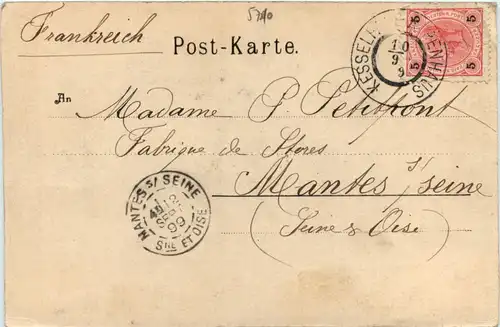 5740
Frankreich
Post-Karte.
KESSELF ENHAUS
10
9
9
5 5
5 5
An
Madame P. Petitpont
Fabrique de Stores
Mantes s/ seine
(Seine & Oise)
MANTES S/ SEINE
SEPT
99
SNE ET OISE